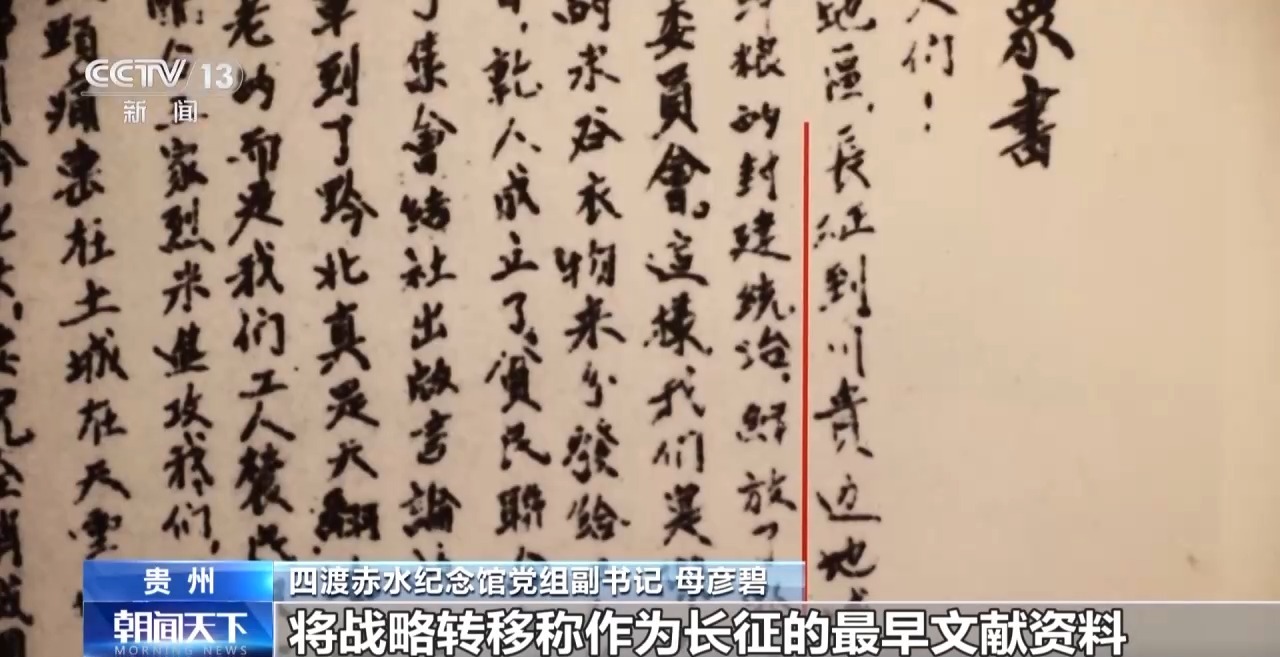 衆書
人们！
地區，長征到川貴边地
粮的封建統治，解放了
委員會。這樣我们是
的米谷衣物来分發给
乾人成立了“貧民聯
了集會結社出版言論
到了黔北真是天翻
老的而是我们工人農
家烈来進攻我们，
在土城在天
CCTV 13
新闻
贵州
四渡赤水纪念馆党组副书记 母彦碧
朝闻天下
MORNING NEWS
将战略转移称作为长征的最早文献资料